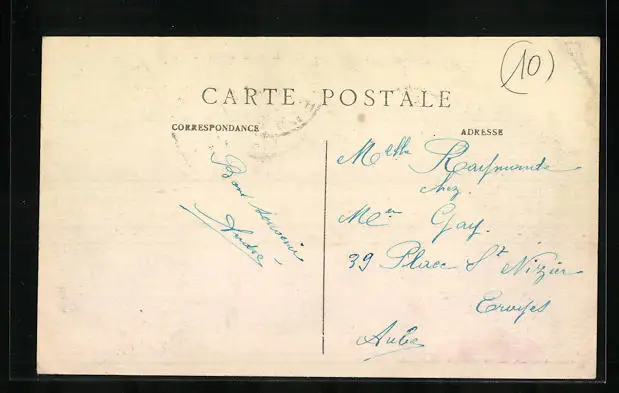 (10)
CARTE POSTALE
CORRESPONDANCE
ADRESSE
Bon souvenir
André
Melle Raymonde
chez
Mon Gay.
39 Place St Nizier
Troyes
Aube